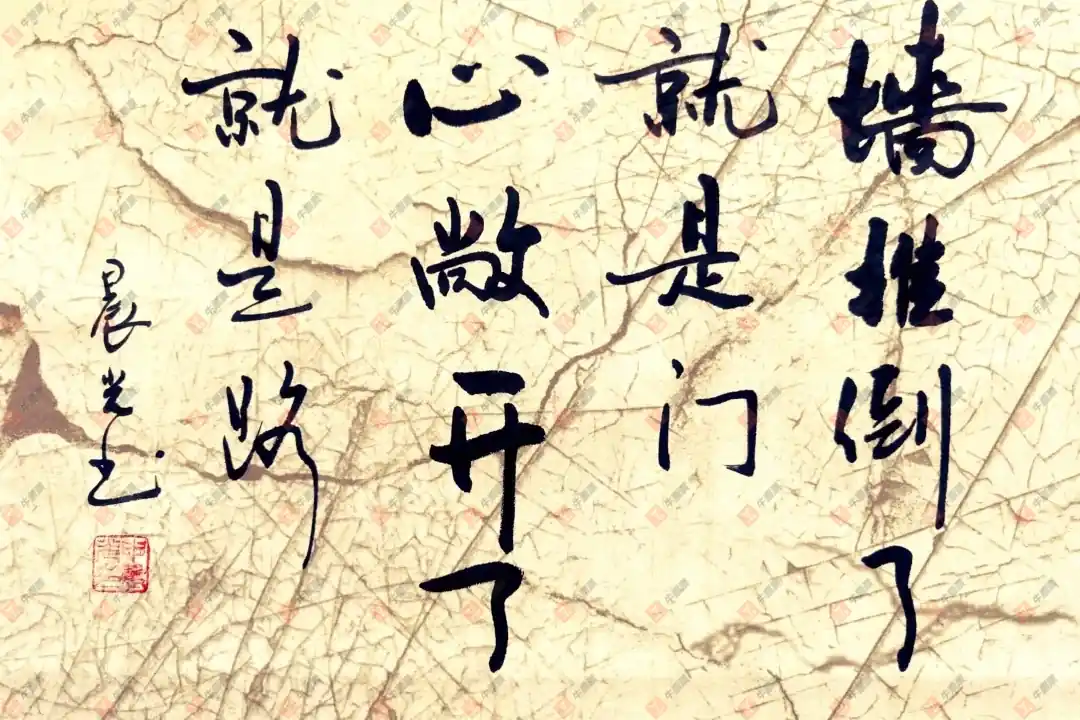 墙推倒了
就是门
心敞开了
就是路
晨光书